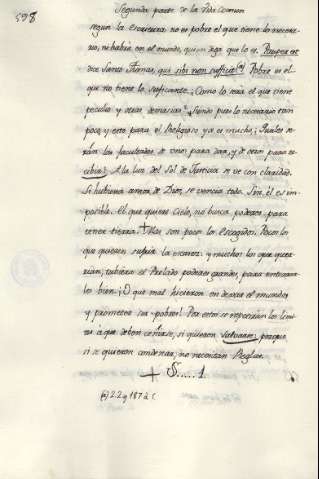 598
Segunda parte de la Vida Comun
segun la Escritura no es pobre el que tiene lo necesa-
rio, ni habrá en el mundo, quien diga que lo es. Pauper est
dice Santo Tomas, qui sibi non sufficit (a) Pobre es el
que no tiene lo suficiente. Como lo será el que tiene
peculio y otras demasias? Siendo pues lo necesario tan
poco, y esto para el Religioso ya es mucho;
las facultades de unos para dar, y de otros para re-
cibir? A la luz del Sol de Justicia se ve con claridad.
Si hubiera amor de Dios, se vencia todo. Sin él es im-
posible. El que quiere Cielo, no busca poderes, para
tener tierra. Mas son pocos los Escogidos. Pocos los
que quieren sufrir la pobreza y muchos los que quer-
rian, tubiera el Prelado poderes grandes, para
los bien. O que mal hicieron en dexar el mundo,
y prometer ser pobres! Por esto se
tes à que deben ceñirse, si quieren salvarse; porque
si se quieren condenar, no necesitan Reglas.
S.....1
(a) 2. 2. q 187 a